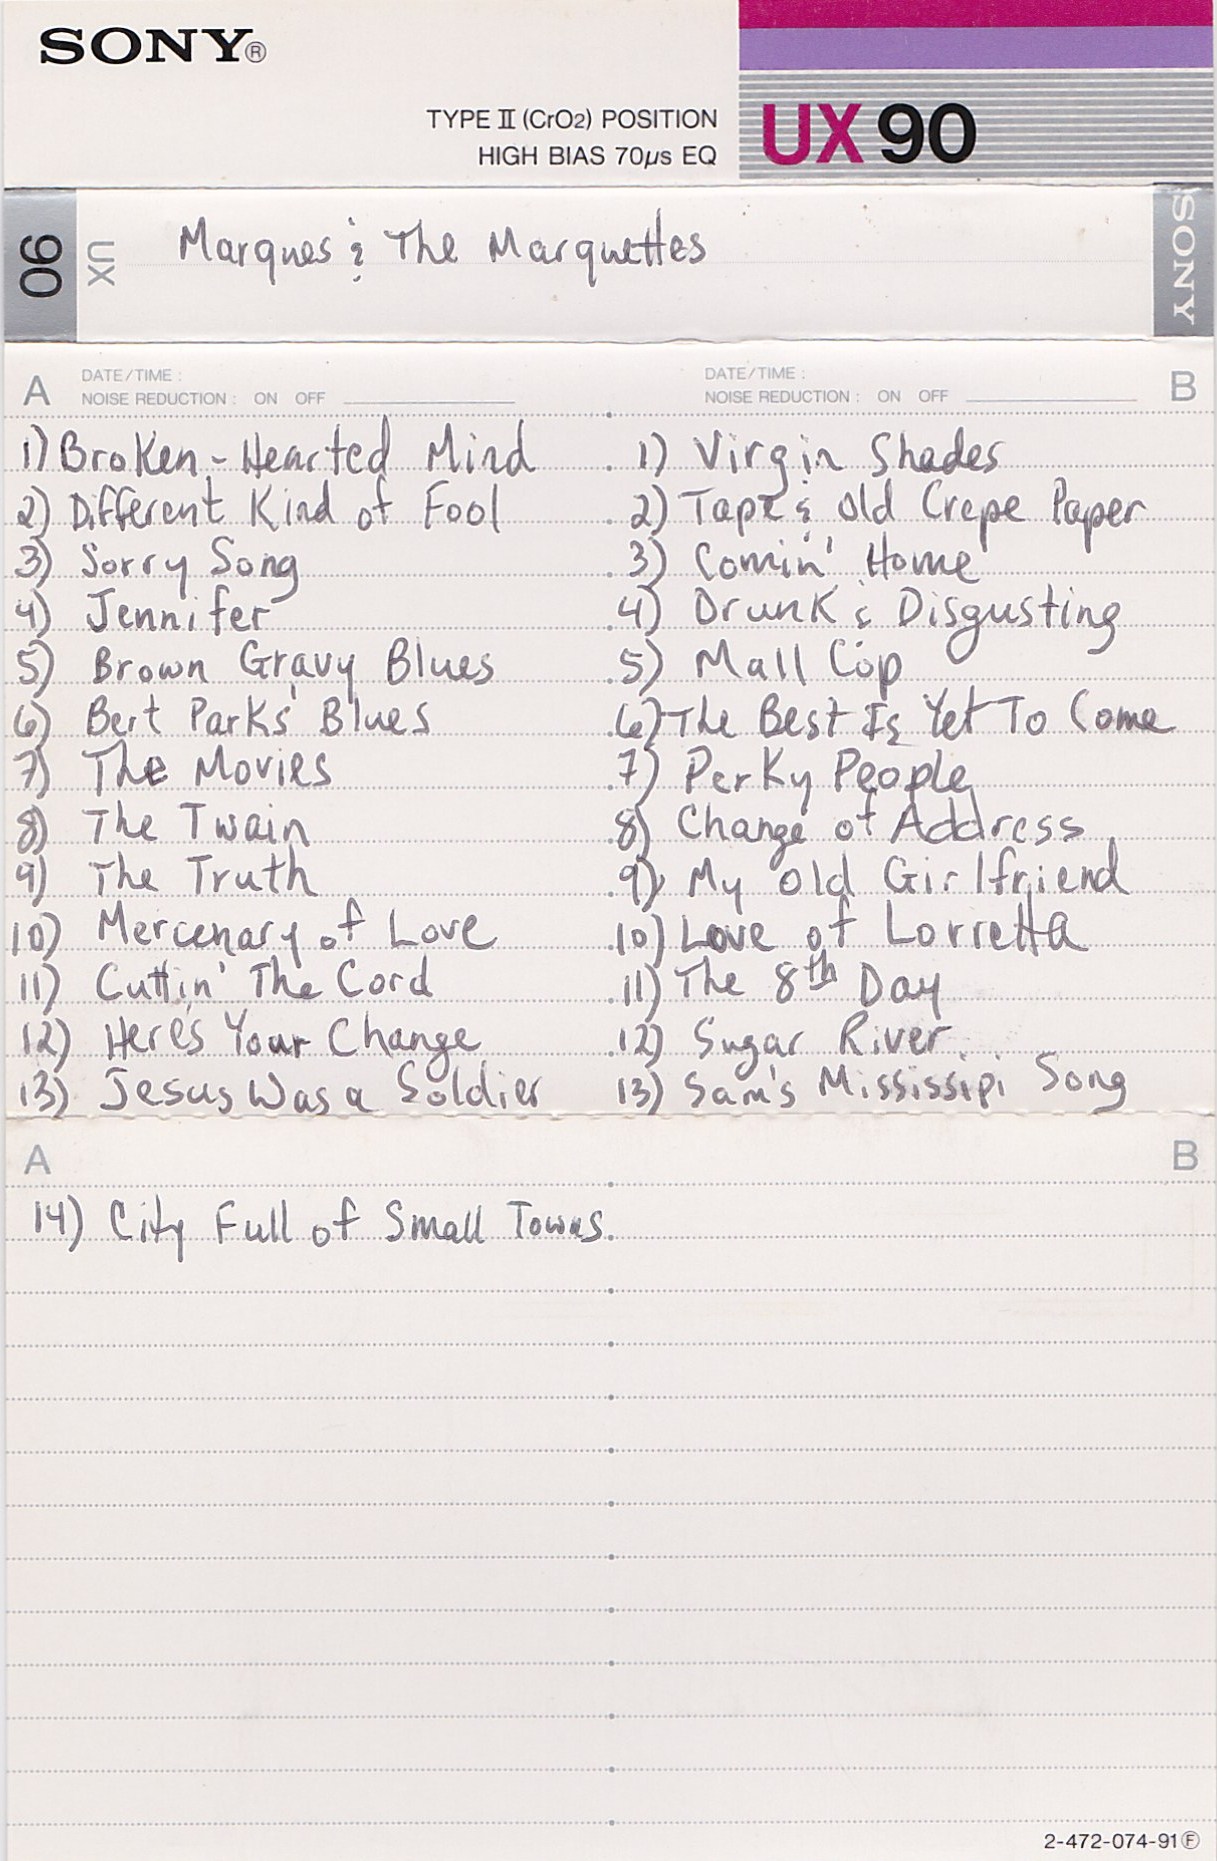 SONY®
TYPE II (CrO2) POSITION
HIGH BIAS 70µs EQ
UX 90
90
UX
Marques & The Marquettes
SONY
A
DATE/TIME :
NOISE REDUCTION : ON OFF
DATE/TIME :
NOISE REDUCTION : ON OFF
B
1) Broken-Hearted Mind
2) Different Kind of Fool
3) Sorry Song
4) Jennifer
5) Brown Gravy Blues
6) Bert Parks' Blues
7) The Movies
8) The Twain
9) The Truth
10) Mercenary of Love
11) Cuttin' The Cord
12) Here's Your Change
13) Jesus Was a Soldier
1) Virgin Shades
2) Tape & Old Crepe Paper
3) Comin' Home
4) Drunk & Disgusting
5) Mall Cop
6) The Best Is Yet To Come
7) Perky People
8) Change of Address
9) My Old Girlfriend
10) Love of Lorretta
11) The 8th Day
12) Sugar River
13) Sam's Mississipi Song
A
B
14) City Full of Small Towns
2-472-074-91 Ⓕ